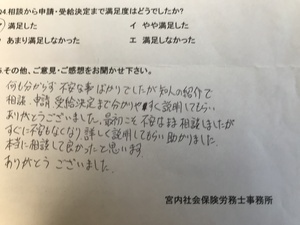 Q4.相談から申請・受給決定まで満足度はどうでしたか?
ア 満足した　イ やや満足した
ウ あまり満足しなかった　エ 満足しなかった
5.その他、ご意見・ご感想をお聞かせ下さい。
何も分からず 不安な事ばかりでしたが知人の紹介で
相談、申請 受給決定まで分かりやすく説明してもらい
ありがとうございました。最初こそ 不安なまま相談しましたが
すぐに不安もなくなり、詳しく説明してもらい助かりました。
本当に相談して良かったと思います。
ありがとう ございました。
宮内社会保険労務士事務所